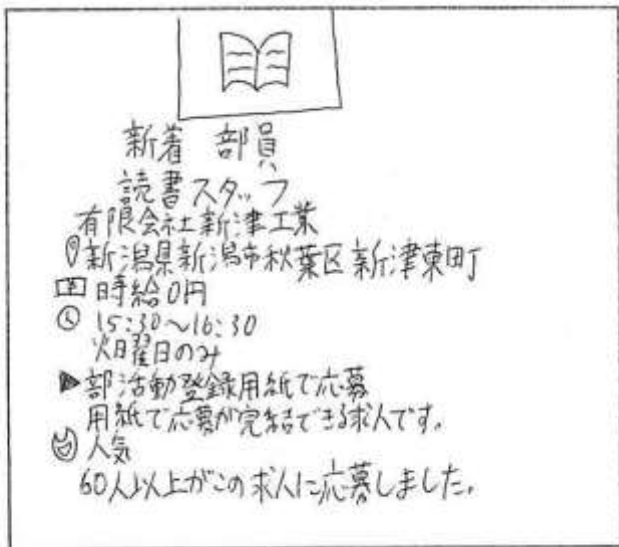 新着 部員
読書スタッフ
有限会社新津工業
新潟県新潟市秋葉区新津東町
時給0円
15:30～16:30
火曜日のみ
▶部活動登録用紙で応募
用紙で応募が完結できる求人です。
人気
60人以上がこの求人に応募しました。